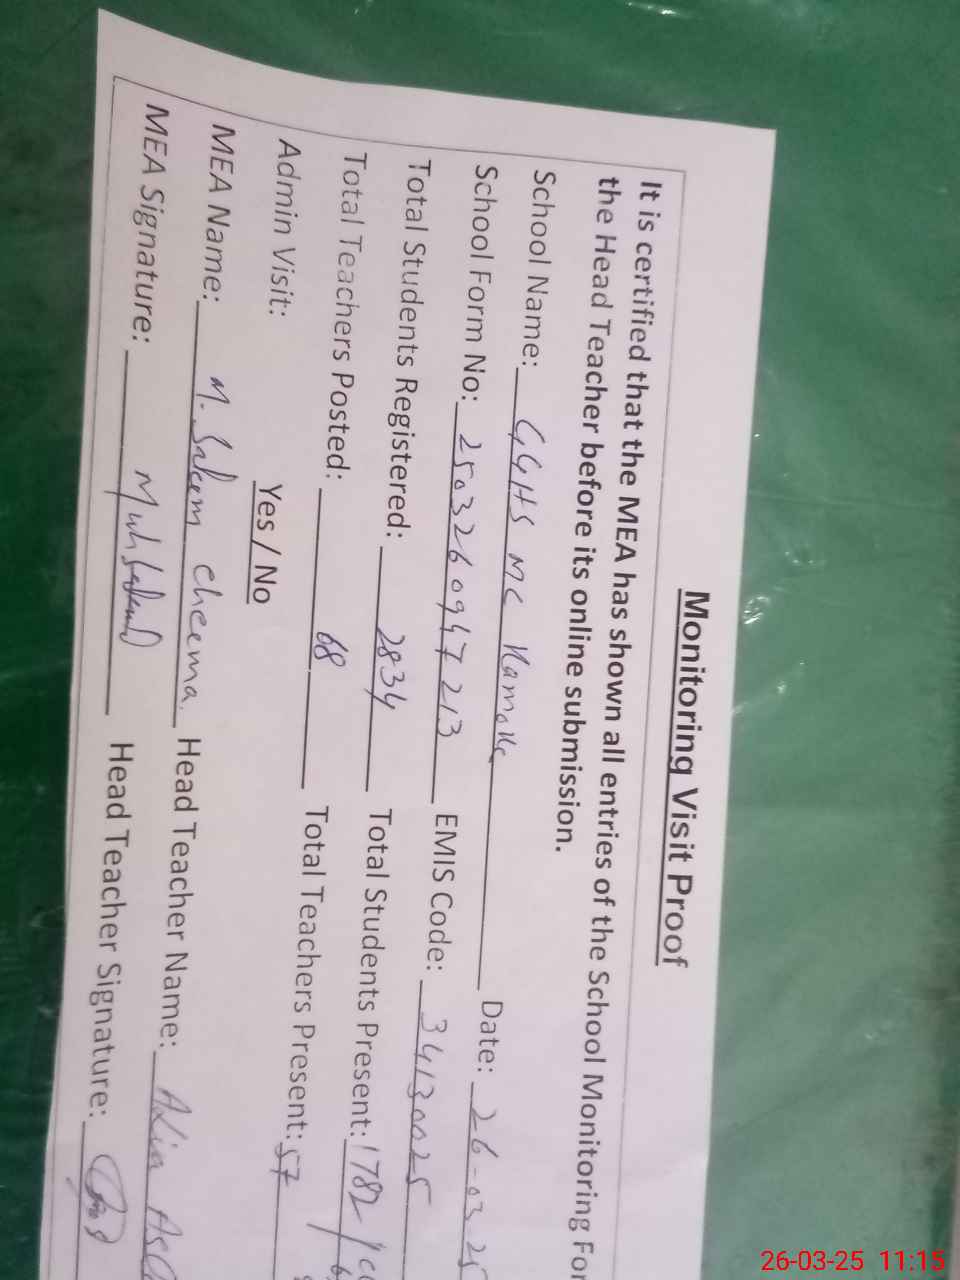 Monitoring Visit Proof
It is certified that the MEA has shown all entries of the School Monitoring For
the Head Teacher before its online submission.
School Name: GGHS MC Kamoke Date: 26-03-25
School Form No: 2503260947213 EMIS Code: 34130025
Total Students Registered: 2834 Total Students Present: 1782
Total Teachers Posted: 68 Total Teachers Present: 57
Admin Visit: Yes / No
MEA Name: M. Saleem Cheema. Head Teacher Name:
MEA Signature: Head Teacher Signature:
26-03-25 11:15